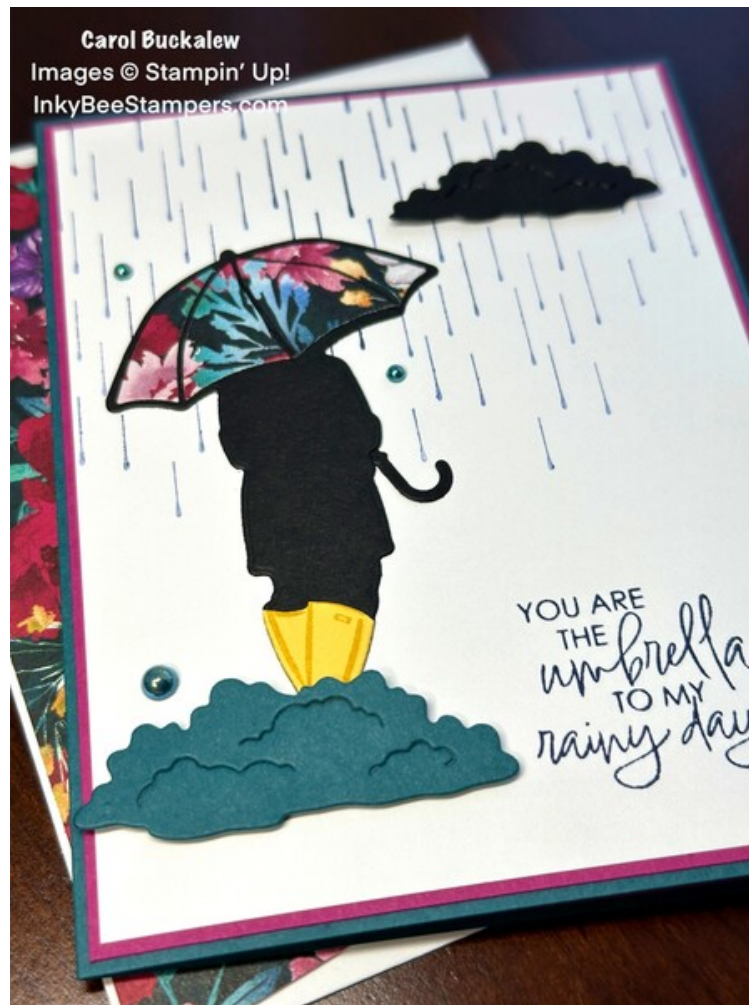 Carol Buckalew
Images © Stampin' Up!
InkyBeeStampers.com
YOU ARE
THE
umbrella
TO MY
rainy day